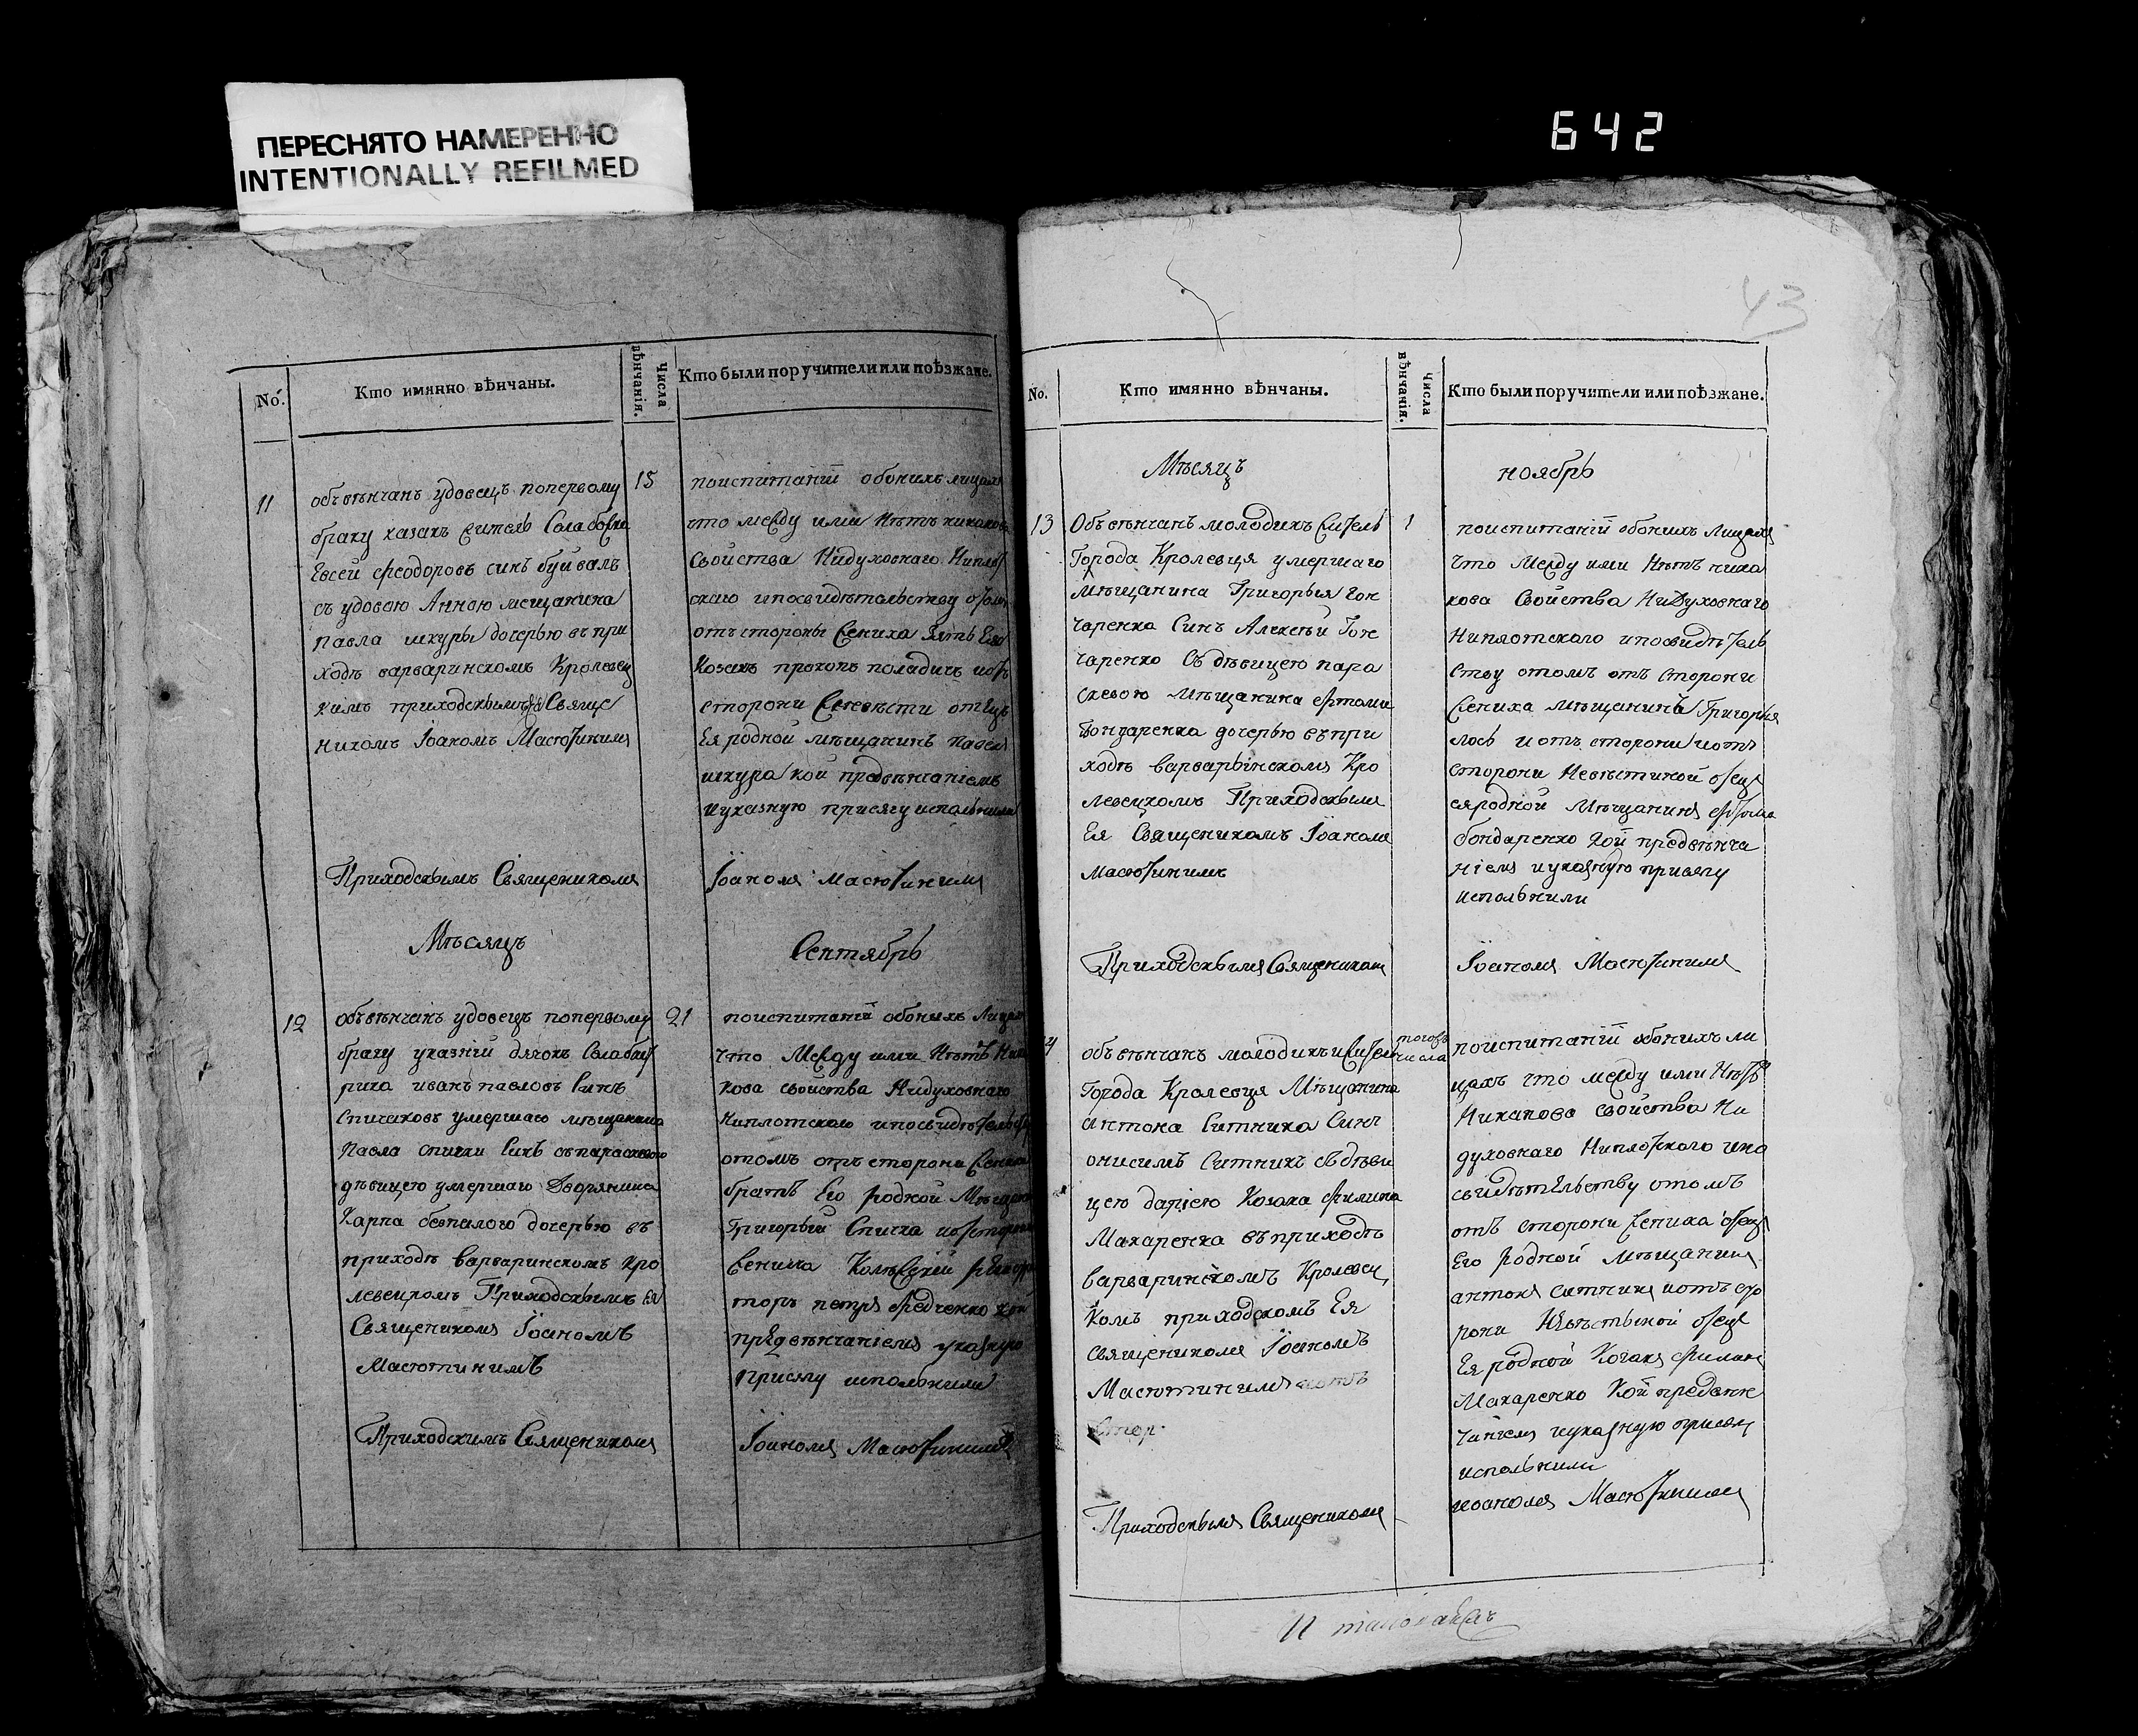 ПЕРЕСНЯТО НАМЕРЕННО
INTENTIONALLY REFILMED
642
43
No.
Кто имянно вѣнчаны.
Числа вѣнчанія.
Кто были поручители или поѣзжане.
11
15
обѣвѣнчанъ удовецъ попервому
браку казакъ
Евсей Феодоровъ синъ буйвалъ
съ удовою Анною мещанина
Павла шкуры дочерью въ при
ходѣ варваринскомъ Кролевец
кимъ приходскимъ Свяще
никомъ Іоаномъ Масютинимъ
поиспитаніи обоихъ лицахъ
что между ими нѣтъ никакова
Свойства Нидуховнаго Ниплот
скаго ипосвидѣтельству отомъ
отъ стороны жениха зять Его
Козакъ прокопъ поладичъ иотъ
стороны невѣсти отецъ
Ея родной мѣщанинъ Павелъ
шкура кой предвѣнчаніемъ
иуказную присягу исполнили
Приходскимъ Священикомъ
Іоаномъ Масютинимъ
Мѣсяцъ
Сентябрь
12
21
обѣвѣнчанъ удовецъ попервому
браку указній дячокъ
иванъ павловъ Синъ
Спичаковъ умершаго мѣщанина
Павла спички Синъ съ параскевою
дѣвицею умершаго Дворянина
Карпа безпалого дочерью въ
приходѣ варваринскомъ Кро
левецкомъ Приходскимъ Ея
Священикомъ Іоаномъ
Масютинимъ
поиспитаніи обоихъ Лицахъ
что Между ими Нѣтъ Ника
кова свойства Нидуховнаго
Ниплотского ипосвидѣтельству
отомъ отъ стороны жениха
братъ Его родной Мѣщанинъ
Григорый Спичка иотстороны
петръ Федченко кой
предвѣнчаніемъ указную
Присягу исполнили
Приходскимъ Священикомъ
Іоаномъ Масютинимъ
No.
Кто имянно вѣнчаны.
Числа вѣнчанія.
Кто были поручители или поѣзжане.
Мѣсяцъ
ноябрь
13
1
Обѣвѣнчанъ молодикъ житель
Города Кролевця умершаго
мѣщанина Григорья Гон
чаренка Синъ Алексѣй Гон
чаренко Съ дѣвицею пара
скевою мѣщанина Фтоми
бондаренка дочерью въ при
ходѣ варварінскомъ Кро
левецкомъ Приходскимъ
Ея Священикомъ Іоаномъ
Масютинимъ
поиспитаніи обоихъ Лицахъ
что Между ими Нѣтъ ника
кова Свойства НиДуховнаго
Ниплотского ипосвидѣтель
ству отомъ отъ стороны
жениха мѣщанинъ Григорья
лось иотъ стороны иотъ
стороны Невѣстиной отецъ
ея родной Мѣщанинъ Фтома
бондаренко Кой предвѣнча
ніемъ иуказную присягу
исполнили
Приходскимъ Священикомъ
Іоаномъ Масютинимъ
4
тогожъ
числа
обѣвѣнчанъ молодикъ житель
Города Кролевця Мѣщанина
антона Ситника Синъ
онисимъ Ситникъ съ дѣви
цею даріею Козака Филипа
Макаренка въ приходѣ
варваринскомъ Кролевец
комъ приходскомъ Ея
священикомъ Іоаномъ
Масютинимъ иотъ
стор
поиспитаніи обоихъ ли
цахъ что между ими Нѣтъ
Никакова свойства Ни
духовнаго Ниплотского ипо
свидѣтельству отомъ
отъ стороны жениха отецъ
Его родной Мѣщанинъ
антонъ ситникъ иотъ сто
роны Невѣстьной отецъ
Ея родной Козакъ Филипъ
Макаренко Кой предвѣн
чаніемъ иуказную присягу
исполнили
Приходскимъ Священикомъ
иоаномъ Масютинимъ